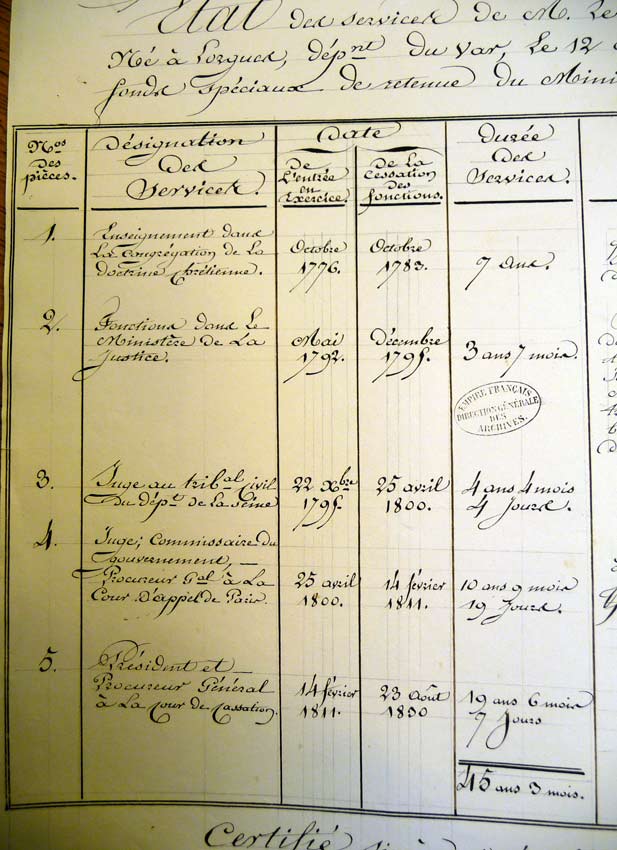 État des services de M. Le
Né à Lorgues, dépnt du Var, Le 12
fonds spéciaux de retenue du Mini
Nos des pièces.
Désignation des Services.
Date
De L'entrée en Exercice.
De La Cessation des fonctions.
Durée des Services.
1.
Enseignement dans
La Congrégation de La
Doctrine Chrétienne.
Octobre 1776.
Octobre 1783.
7 ans.
2.
Fonctions dans Le
Ministère de La
Justice.
Mai 1792.
Décembre 1795.
3 ans 7 mois.
EMPIRE FRANÇAIS
DIRECTION GÉNÉRALE
DES
ARCHIVES.
3.
Juge au tribal Civil
du dépt de la Seine
22 Xbre 1795.
25 avril 1800.
4 ans 4 mois
4 Jours.
4.
Juge, Commissaire du
gouvernement,
Procureur Gal à La
Cour D'appel de Paris.
25 avril 1800.
14 février 1811.
10 ans 9 mois
19 Jours.
5.
Président et
Procureur Général
à La Cour de Cassation.
14 février 1811.
23 Août 1830
19 ans 6 mois
7 Jours
45 ans 3 mois.
Certifié